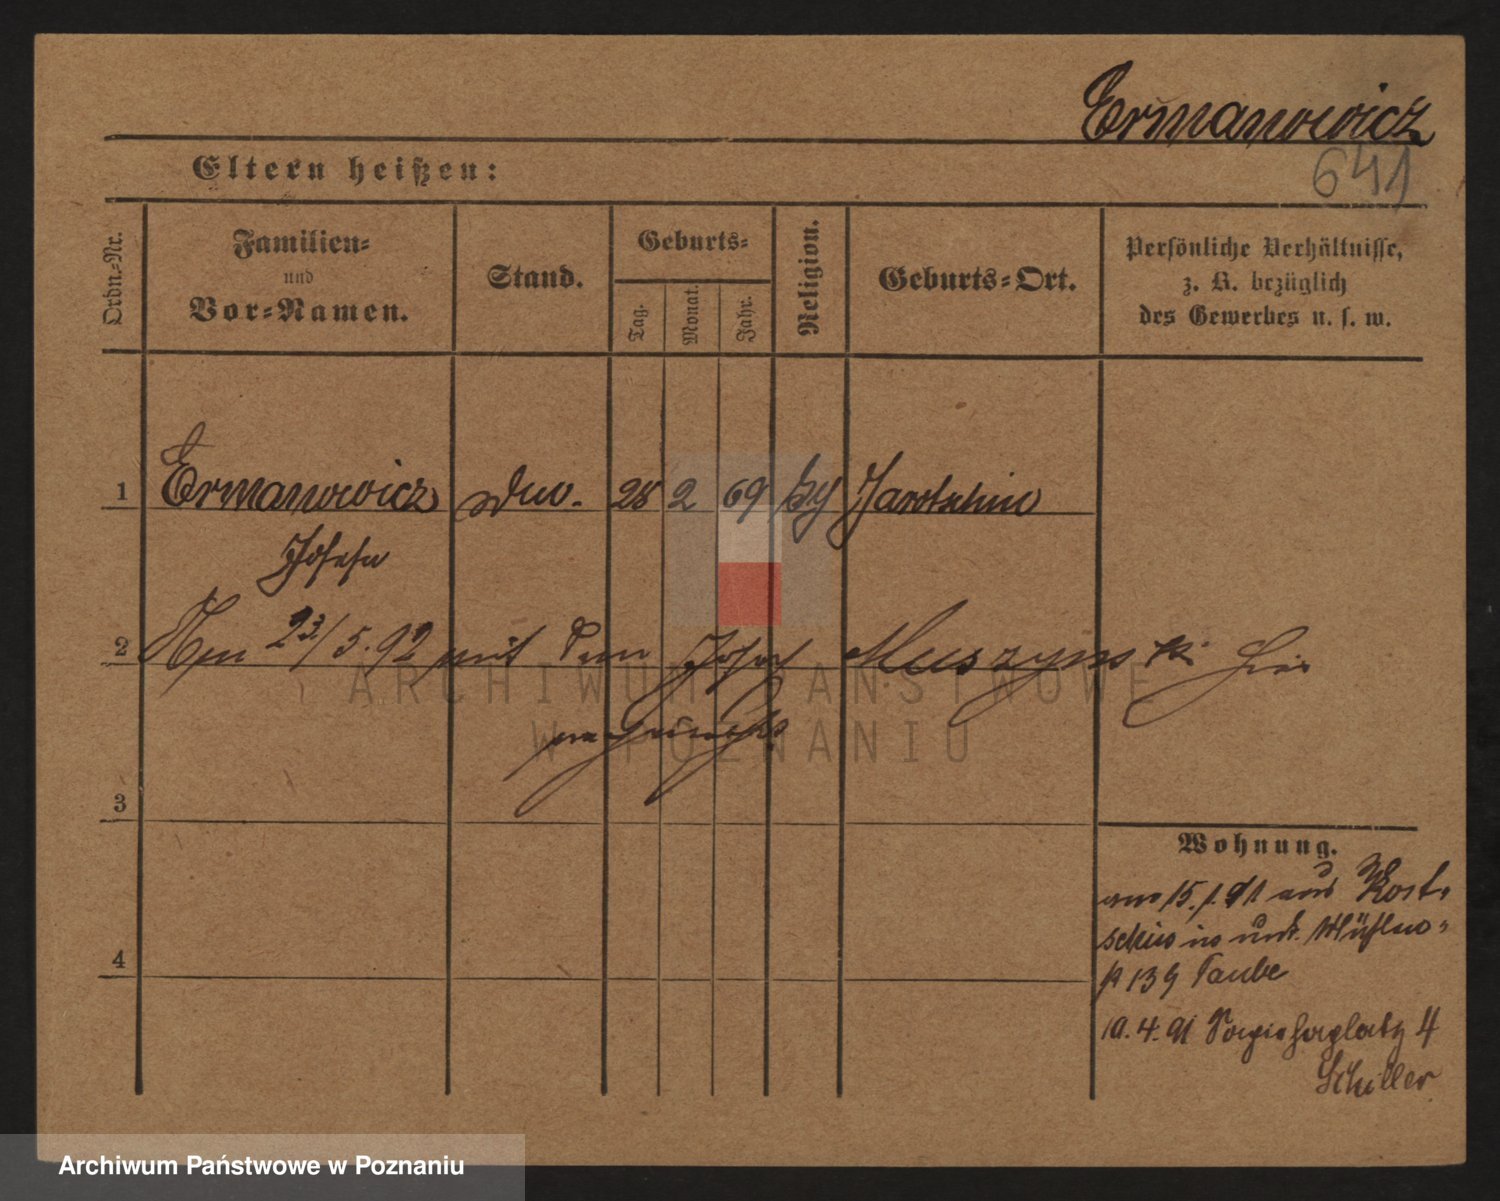 Ermanowicz
641
Eltern heißen:
Ordn.-Nr.
Familien-
und
Vor-Namen.
Stand.
Geburts-
Tag.
Monat.
Jahr.
Religion.
Geburts-Ort.
Persönliche Verhältnisse,
z. B. bezüglich
des Gewerbes u. s. w.
1 Ermanowicz 28 2 69 Jarotschin
Josefa
2 23/5.92 mit dem Josef Muszynski hier
3
4
Wohnung.
am 15.1.91 aus Kost-
schin in unt. Mühlen-
139 Taube
10.4.91 Sapiehaplatz 4
Schiller
ARCHIWUM PAŃSTWOWE
W POZNANIU
Archiwum Państwowe w Poznaniu